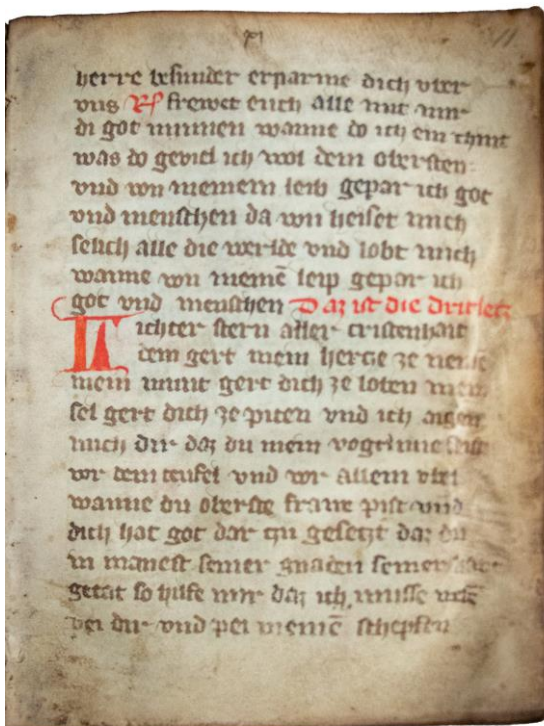 XI 11
herre besunder erparme dich vber
vns R frewet euch alle mit mir
di got minnen wanne do ich ein chint
was do geviel ich wol dem obersten
vnd von meinem leib gepar ich got
vnd menschen da von heiset mich
selich alle die werlde vnd lobt mich
wanne von meinē leip gepar ich
got vnd menschen Daz ist die drit letz
Lichter stern aller cristenhait
dem gert mein hertze ze
mein munt gert dich ze loben mein
sel gert dich ze piten vnd ich aigen
mich dir daz du mein vogtinne seist
vor dem teufel vnd vor allem vbel
wanne du oberste frawe pist vnd
dich hat got dar zu gesetzt daz du
in manest seiner gnaden seiner
getat so hilfe mir daz ich musse
bei dir vnd pei meinē schepfer